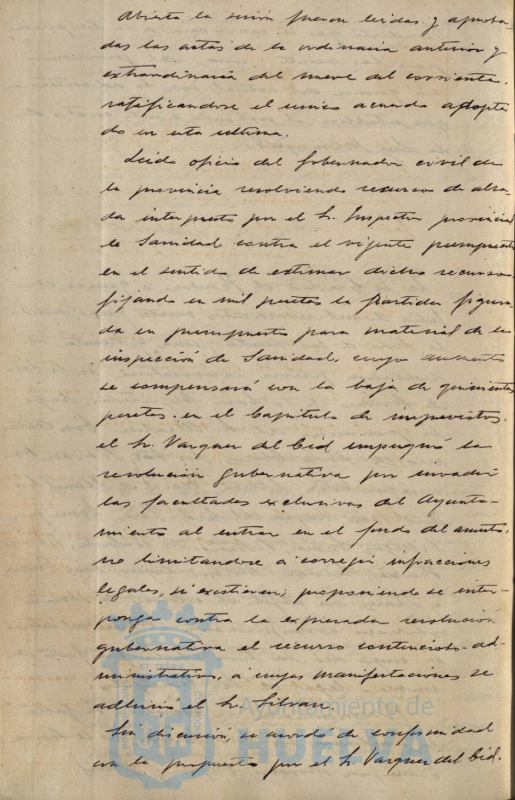 Abierta la sesión fueron leidas y aproba-
das las actas de la ordinaria anterior y
extraordinaria del nueve del corriente,
ratificandose el unico acuerdo adopta
do en esta ultima.
Leido oficio del Gobernador civil de
la provincia resolviendo recurso de alza-
da interpuesto por el Sr. Inspector provincial
de Sanidad contra el vigente presupuesto
en el sentido de estimar dicho recurso
fijando en mil pesetas la partida figura-
da en presupuesto para material de la
inspección de Sanidad, cuyo aumento
se compensará con la baja de quinientas
pesetas en el Capitulo de imprevistos,
el Sr. Vazquez del Cid impugnó la
resolución gubernativa por invadir
las facultades exclusivas del Ayunta-
miento al entrar en el fondo del asunto,
no limitandose a corregir infracciones
legales, si existieran; proponiendo se inter-
ponga contra la expresada resolución
gubernativa el recurso contencioso-ad-
ministrativo, a cuyas manifestaciones se
adhirió el Sr.
Sin discusión, se acordó de conformidad
con lo propuesto por el Sr. Vazquez del Cid.
Ayuntamiento de
HUELVA